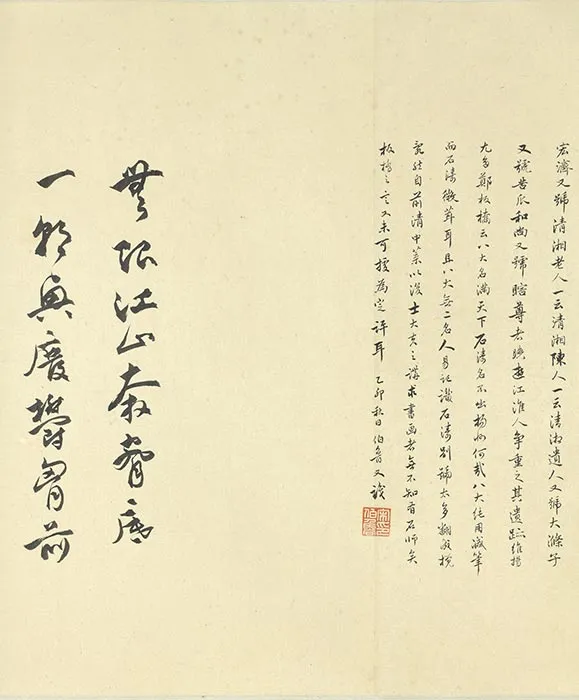 宏濟又號清湘老人一云清湘陳人一云清湘遺人又號大滌子
又號苦瓜和尚又號瞎尊者時遊江淮人爭重之其遺跡維揚
尤多鄭板橋云八大名滿天下石濤名不出揚州何哉八大純用減筆
而石濤微茸耳且八大無二名人易記識石濤別號太多翻成攪
亂然自前清中葉以後士大夫之講求書画者無不知有石師矣
板橋之言又未可援為定評耳 乙卯秋日伯魯又識
無限江山底
一朝興廢鬱胷前